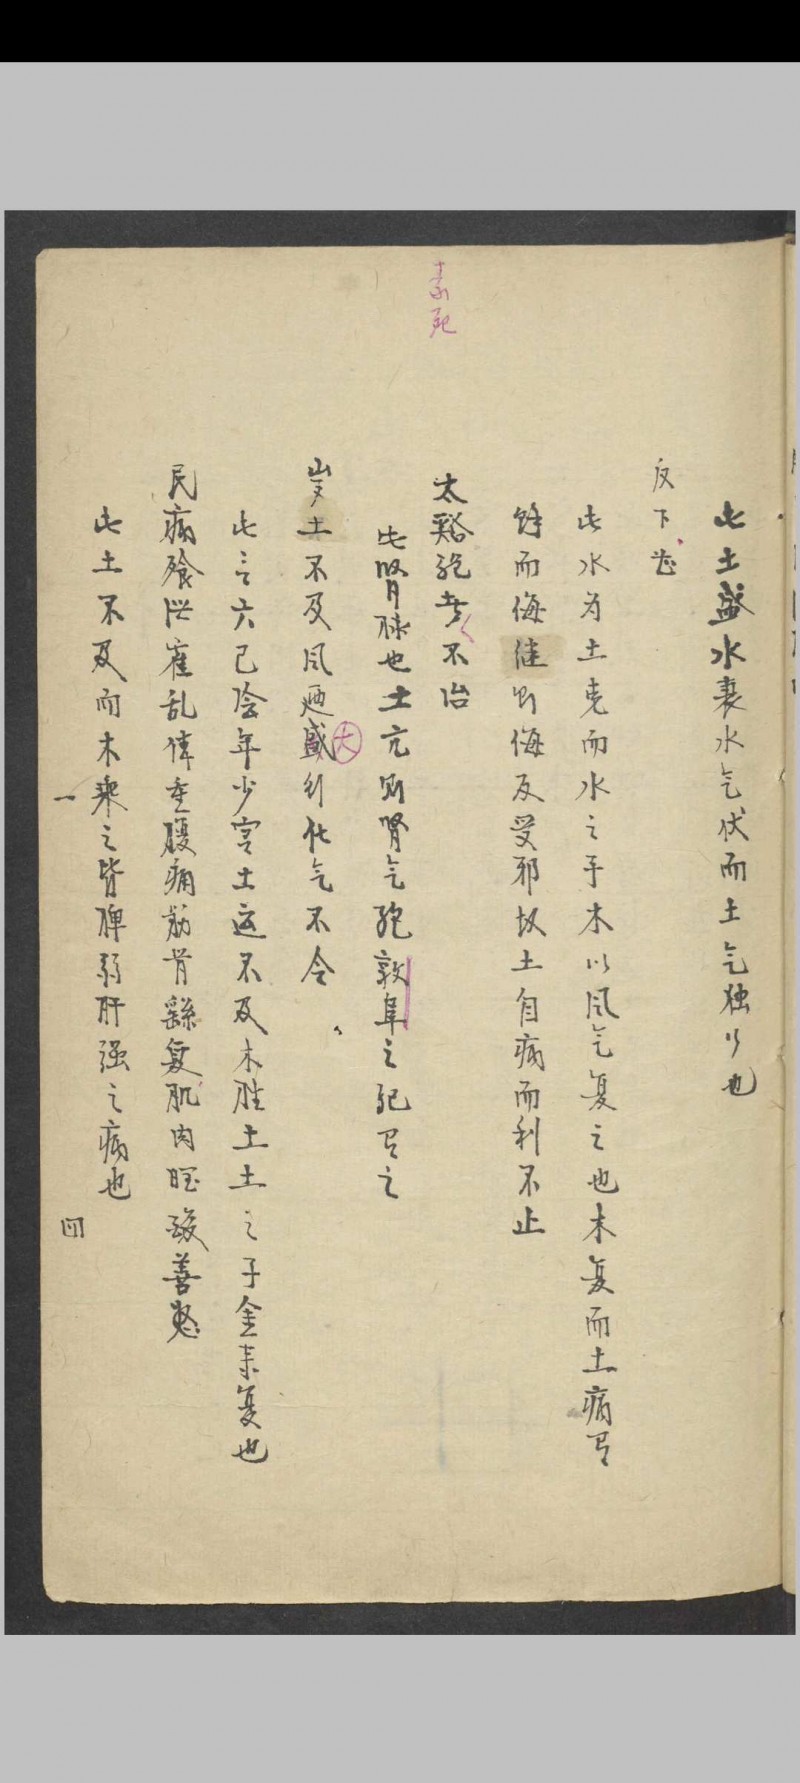 素死
此土盛水衰水气伏而土气独行也
反下甚
此水为土克而水之子木以风气复之也木复而土病有
馀而侮继则侮反受邪故土自病而利不止
太谿绝者不治
此肾脉也土亢则肾气绝敦阜之纪有之
岁土不及风迺盛行化气不令
大
此言六己陰年少宫土运不及木胜土土之子金来复也
民病飧泄霍乱体重腹痛筋骨繇复肌肉瞤酸善怒
此土不及而木乘之皆脾弱肝强之病也
四